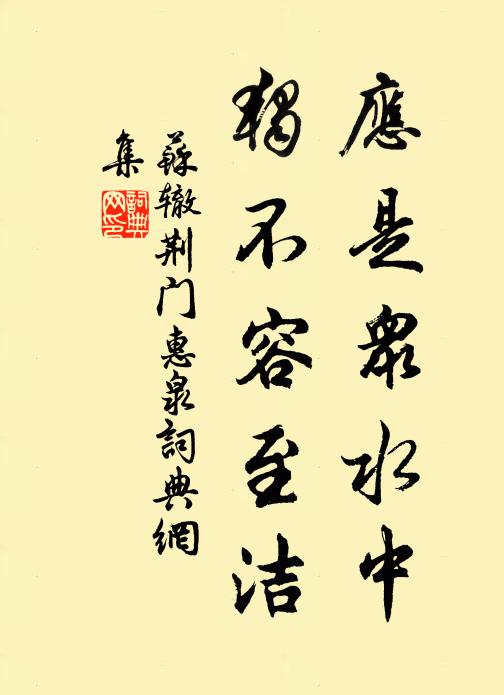 應是眾水中
獨不容至洁
蘇辙荆门惠泉詞典網
集
詞典
网印